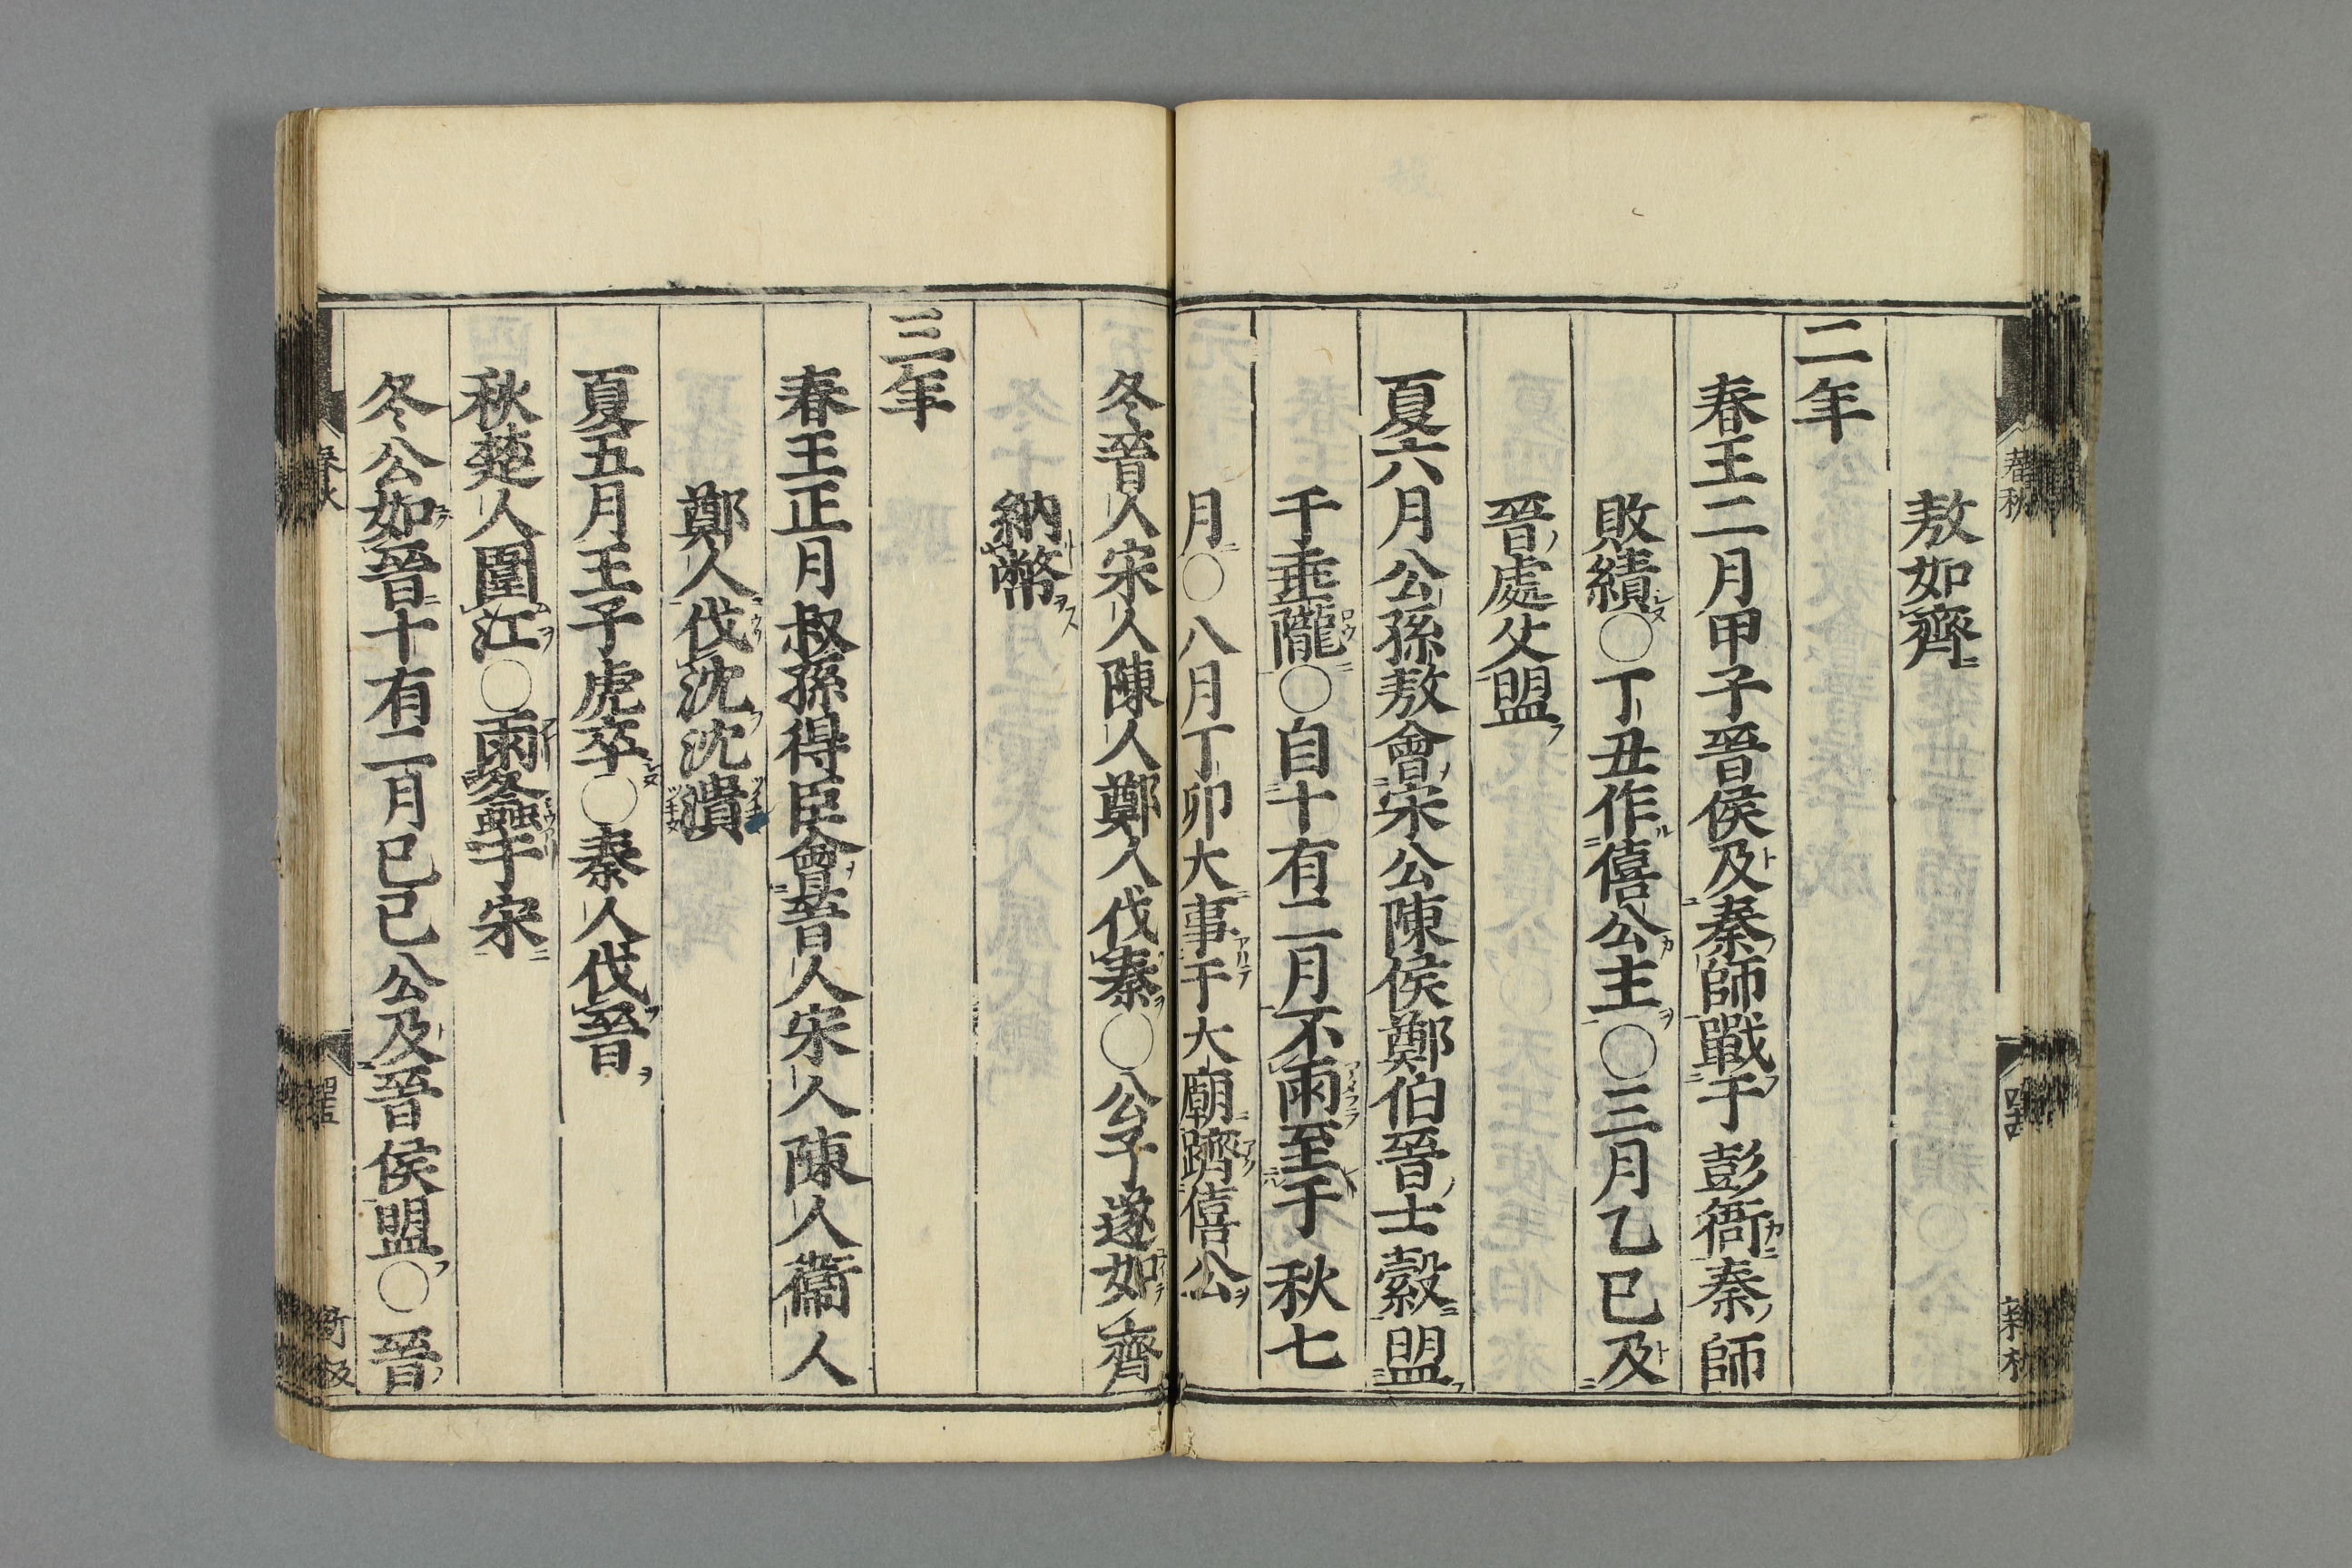 敖如齊
二年
春王二月甲子晉侯及秦師戰于彭衙秦師
敗績○丁丑作僖公主○三月乙巳及
晉處父盟
夏六月公孫敖會宋公陳侯鄭伯晉士縠盟
于垂隴○自十有二月不雨至于秋七
月○八月丁卯大事于大廟躋僖公
冬晉人宋人陳人鄭人伐秦○公子遂如齊
納幣
三年
春王正月叔孫得臣會晉人宋人陳人衞人
鄭人伐沈沈潰
夏五月王子虎卒○秦人伐晉
秋楚人圍江○雨螽于宋
冬公如晉十有二月己巳公及晉侯盟○晉